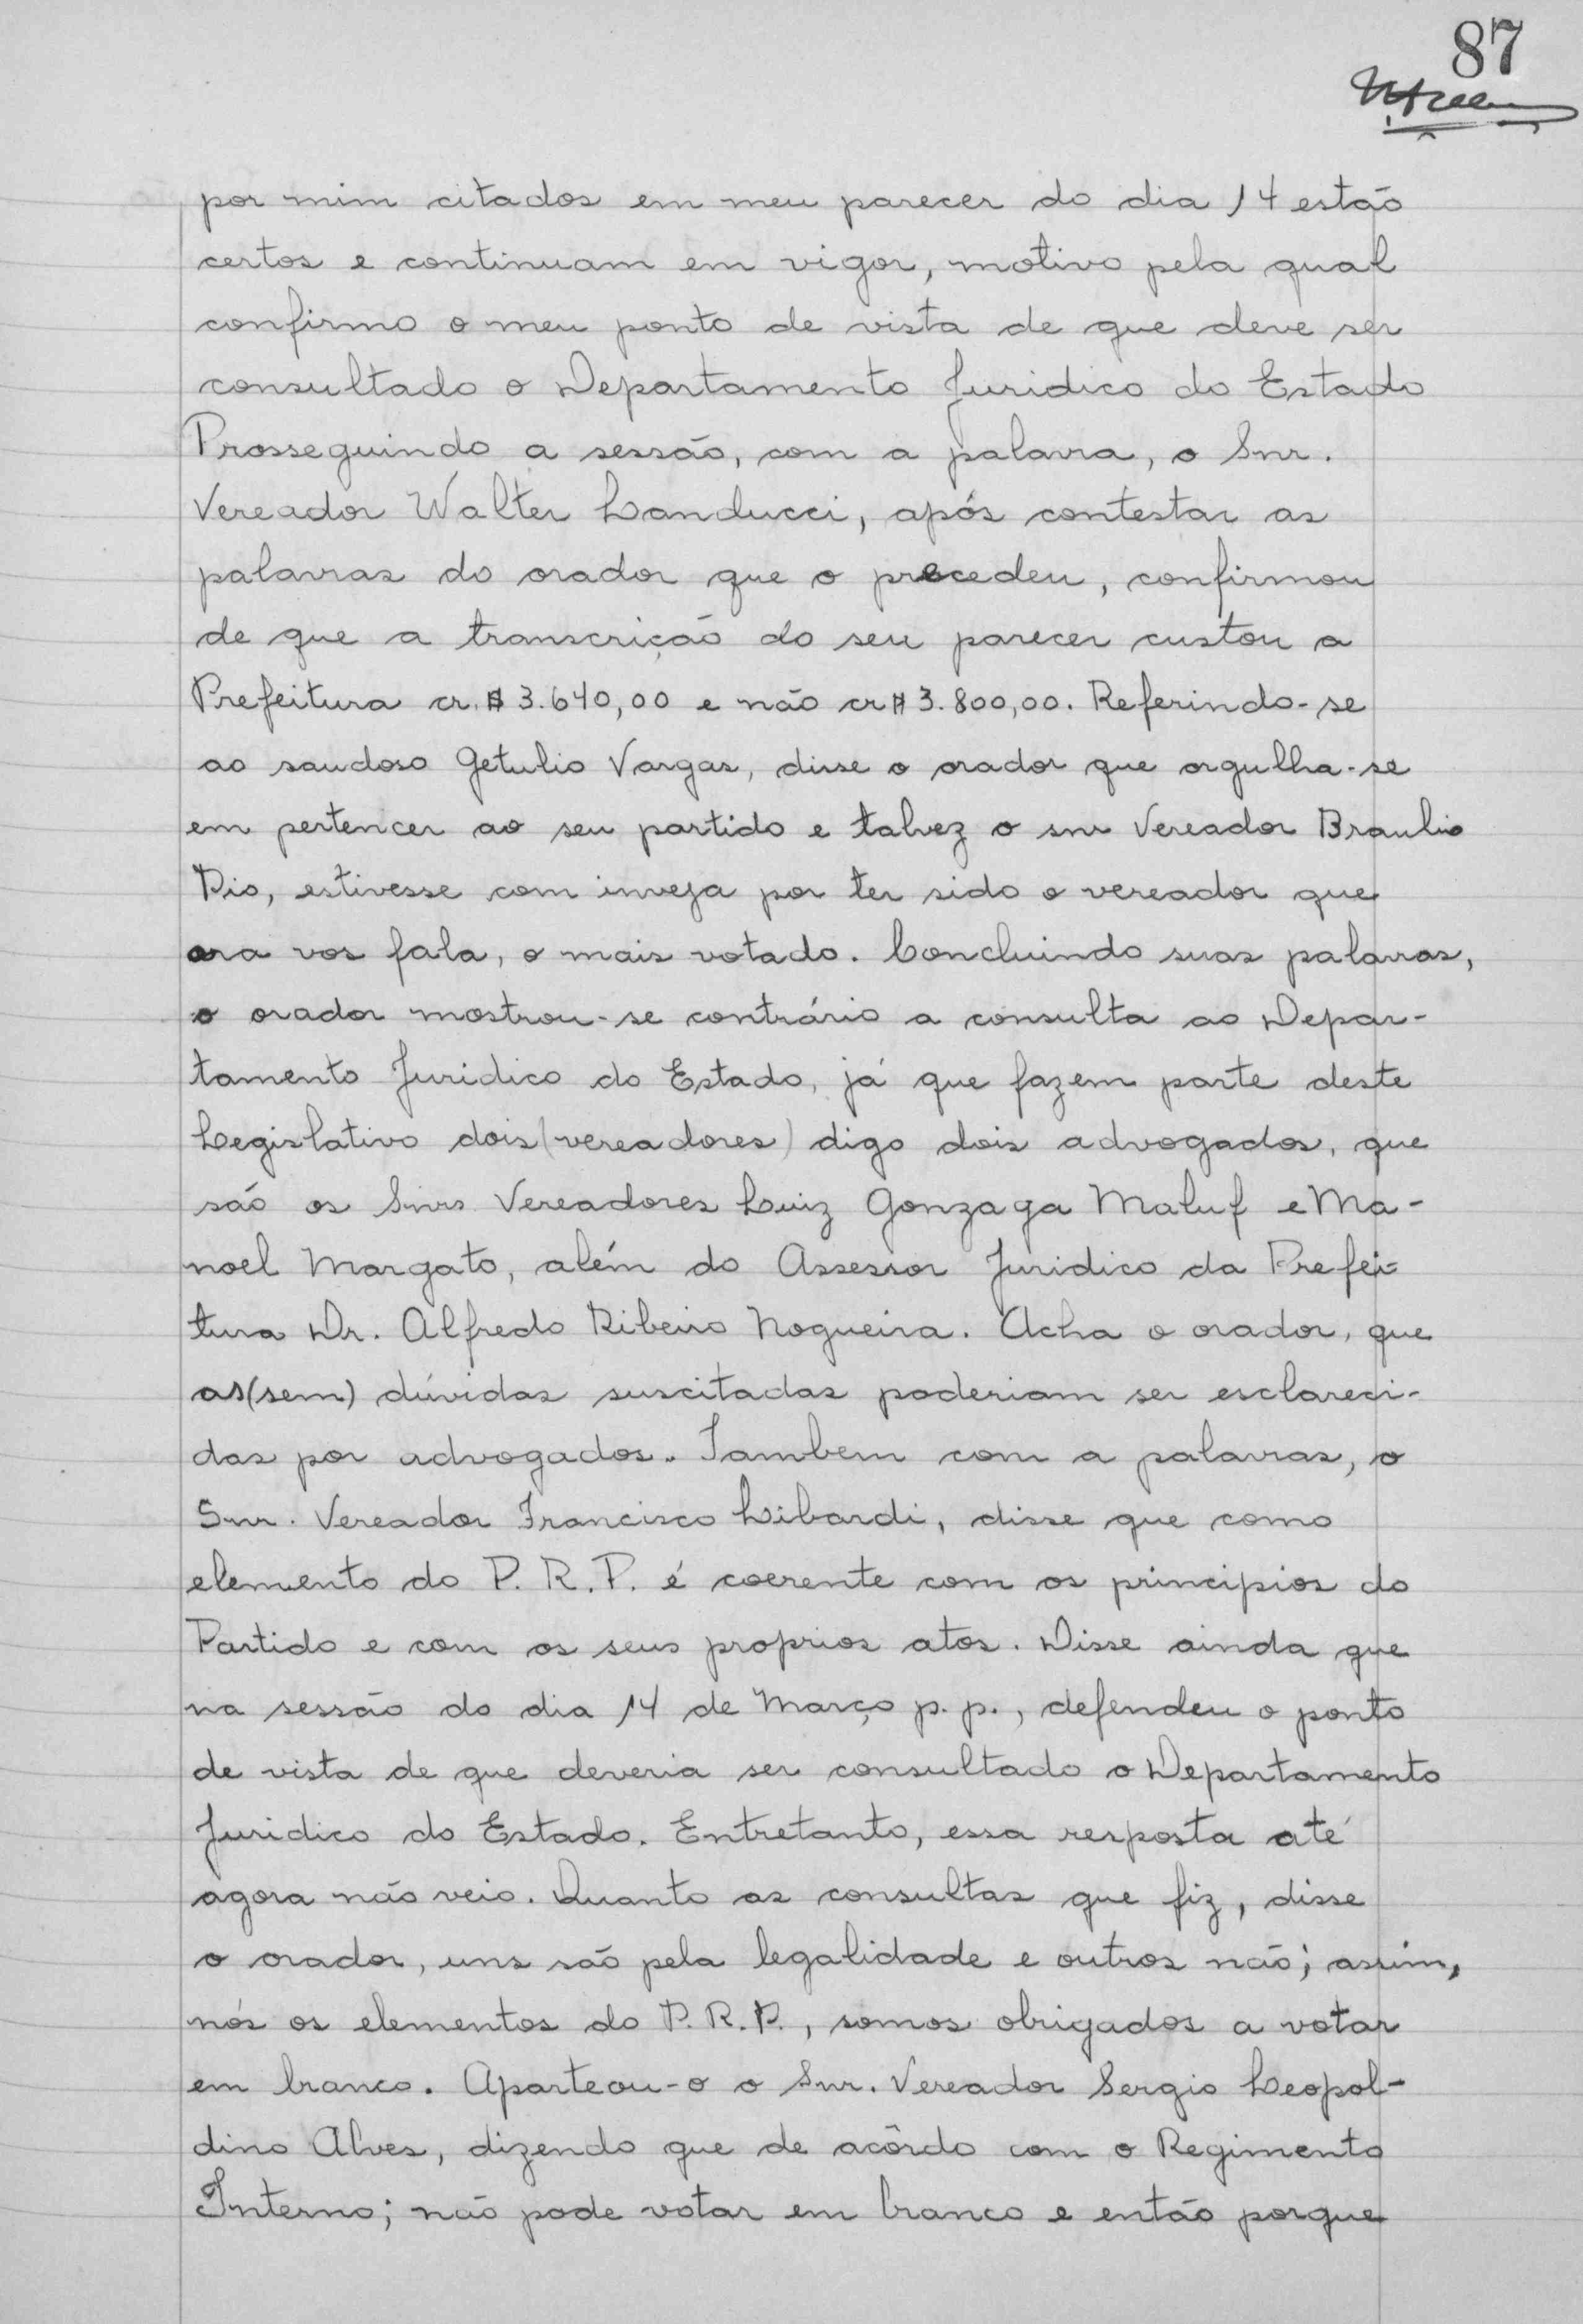 87
por mim citados em meu parecer do dia 14 estão
certos e continuam em vigor, motivo pela qual
confirmo o meu ponto de vista de que deve ser
consultado o Departamento Juridico do Estado
Prosseguindo a sessão, com a palavra, o Snr.
Vereador Walter Landucci, após contestar as
palavras do orador que o precedeu, confirmou
de que a transcrição do seu parecer custou a
Prefeitura cr.$ 3.640,00 e não cr$ 3.800,00. Referindo-se
ao saudoso Getulio Vargas, disse o orador que orgulha-se
em pertencer ao seu partido e talvez o snr Vereador Braulio
Pio, estivesse com inveja por ter sido o vereador que
ora vos fala, o mais votado. Concluindo suas palavras,
o orador mostrou-se contrário a consulta ao Depar-
tamento Juridico do Estado, já que fazem parte deste
Legislativo dois (vereadores) digo dois advogados, que
são os Snrs Vereadores Luiz Gonzaga Maluf e Ma-
noel Margato, além do Assessor Juridico da Prefei-
tura Dr. Alfredo Ribeiro Nogueira. Acha o orador, que
as(sem) dúvidas suscitadas poderiam ser esclareci-
das por advogados. Tambem com a palavras, o
Snr. Vereador Francisco Libardi, disse que como
elemento do P. R. P. é coerente com os principios do
Partido e com os seus proprios atos. Disse ainda que
na sessão do dia 14 de Março p. p., defendeu o ponto
de vista de que deveria ser consultado o Departamento
Juridico do Estado. Entretanto, essa resposta até
agora não veio. Quanto as consultas que fiz, disse
o orador, uns são pela legalidade e outros não; assim,
nós os elementos do P. R. P., somos obrigados a votar
em branco. Aparteou-o o Snr. Vereador Sergio Leopol-
dino Alves, dizendo que de acôrdo com o Regimento
Interno; não pode votar em branco e então porque